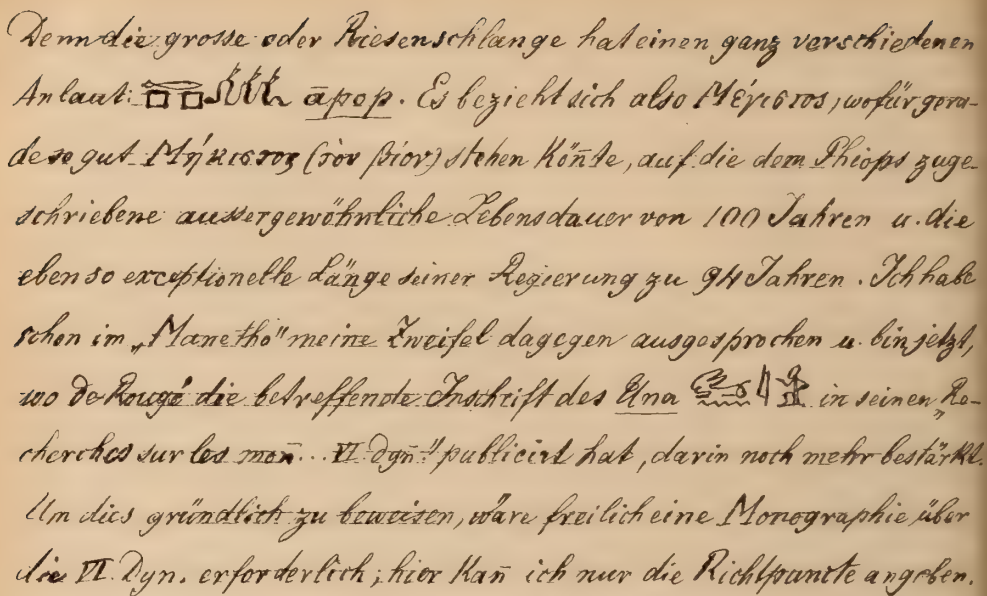 Denn die grosse oder Riesenschlange hat einen ganz verschiedenen
Anlaut: āpop. Es bezieht sich also Μέγιστος, wofür gera-
de so gut Μήκιστος (τὸν βίον) stehen Kön̄te, auf die dem Phiops zuge-
schriebene aussergewöhnliche Lebensdauer von 100 Jahren u. die
ebenso exceptionelle Länge seiner Regierung zu 94 Jahren. Ich habe
schon im „Manetho" meine Zweifel dagegen ausgesprochen u. bin jetzt,
wo de Rougé die betreffende Inschrift des Una in seinen „Re-
cherches sur les mon̄... VI Dyn̄." publicirt hat, darin noch mehr bestärkt.
Um dies gründlich zu beweisen, wäre freilich eine Monographie über
die VI. Dyn. erforderlich; hier Kan̄ ich nur die Richtpuncte angeben.